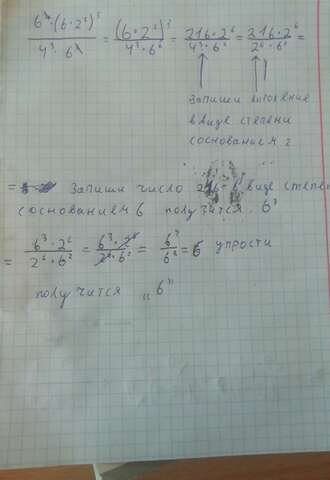 6⁴·(6·2²)³ / 4³·6⁶ = (6·2²)³ / 4³·6² = 216·2⁶ / 4³·6² = 216·2⁶ / 2⁶·6² =
Запиши
в виде степени
с основанием 2
= Запиши число 216 в виде степен
с основанием 6 получится 6³
= 6³·2⁶ / 2⁶·6² = 6³·2⁶ / 2⁶·6² = 6³ / 6² = 6 упрости
получится „6"